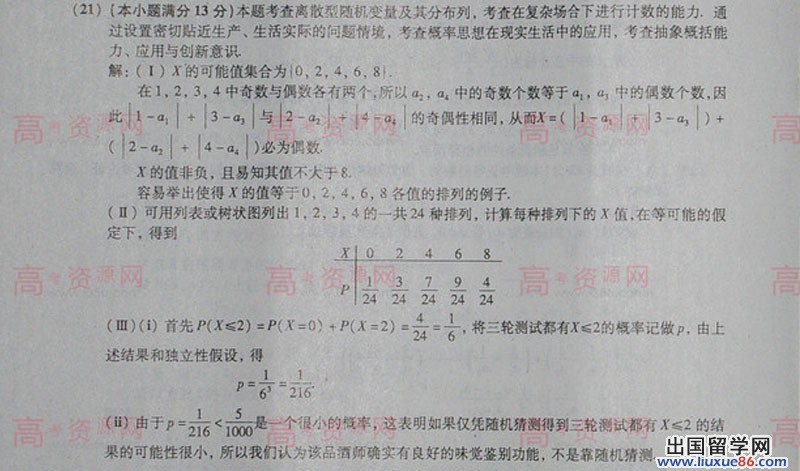 (21)(本小题满分13分)本题考查离散型随机变量及其分布列,考查在复杂场合下进行计数的能力.通
过设置密切贴近生产、生活实际的问题情境,考查概率思想在现实生活中的应用,考查抽象概括能
力、应用与创新意识.
解:(Ⅰ)X的可能值集合为{0,2,4,6,8}.
在1,2,3,4中奇数与偶数各有两个,所以a₂,a₄中的奇数个数等于a₁,a₃中的偶数个数,因
此|1-a₁|+|3-a₃|与|2-a₂|+|4-a₄|的奇偶性相同,从而X=(|1-a₁|+|3-a₃|)+
(|2-a₂|+|4-a₄|)必为偶数.
X的值非负,且易知其值不大于8.
容易举出使得X的值等于0,2,4,6,8各值的排列的例子.
(Ⅱ)可用列表或树状图列出1,2,3,4的一共24种排列,计算每种排列下的X值,在等可能的假
定下,得到
X 0 2 4 6 8
P 1/24 3/24 7/24 9/24 4/24
(Ⅲ)(ⅰ)首先P(X≤2)=P(X=0)+P(X=2)=4/24=1/6,将三轮测试都有X≤2的概率记做p,由上
述结果和独立性假设,得
p=1/6³=1/216.
(ⅱ)由于p=1/216<5/1000是一个很小的概率,这表明如果仅凭随机猜测得到三轮测试都有X≤2的结
果的可能性很小,所以我们认为该品酒师确实有良好的味觉鉴别功能,不是靠随机猜测.
高考资源网
高考资源网
高考资源网
高考资源网
高考资源网
高考资源网
出国留学网
www.liuxue86.com